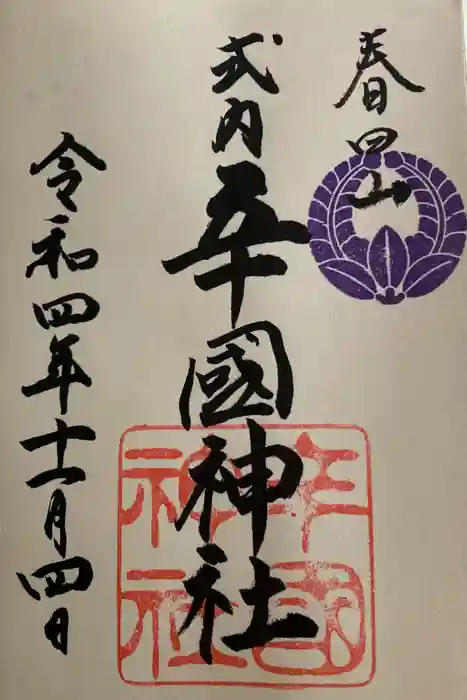 春日山
式内 辛國神社
令和四年十一月四日
辛国
神社